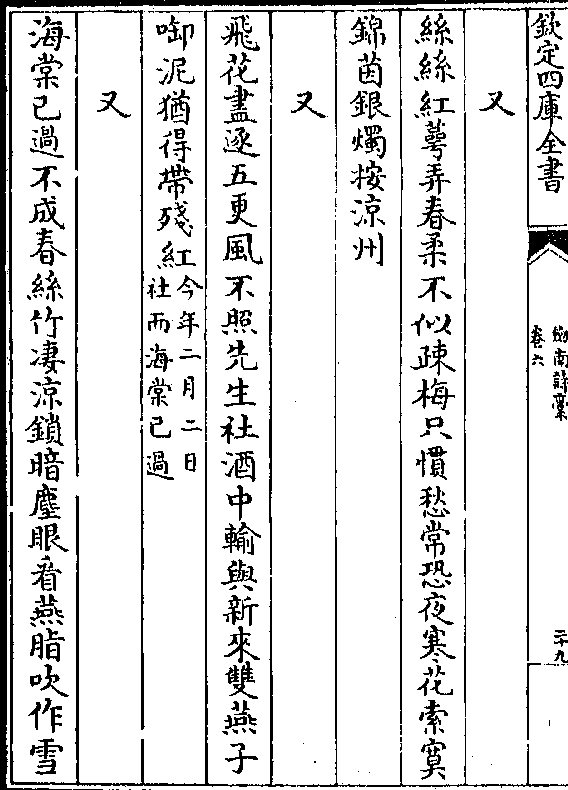 欽定四庫全書
劍南詩稾
卷六
二十九
又
絲絲紅萼弄春柔不似疎梅只慣愁常恐夜寒花索寞
錦茵銀燭按涼州
又
飛花盡逐五更風不照先生社酒中輸與新來雙燕子
啣泥猶得帶殘紅今年二月二日
社而海棠已過
又
海棠已過不成春絲竹凄涼鎖暗塵眼看燕脂吹作雪